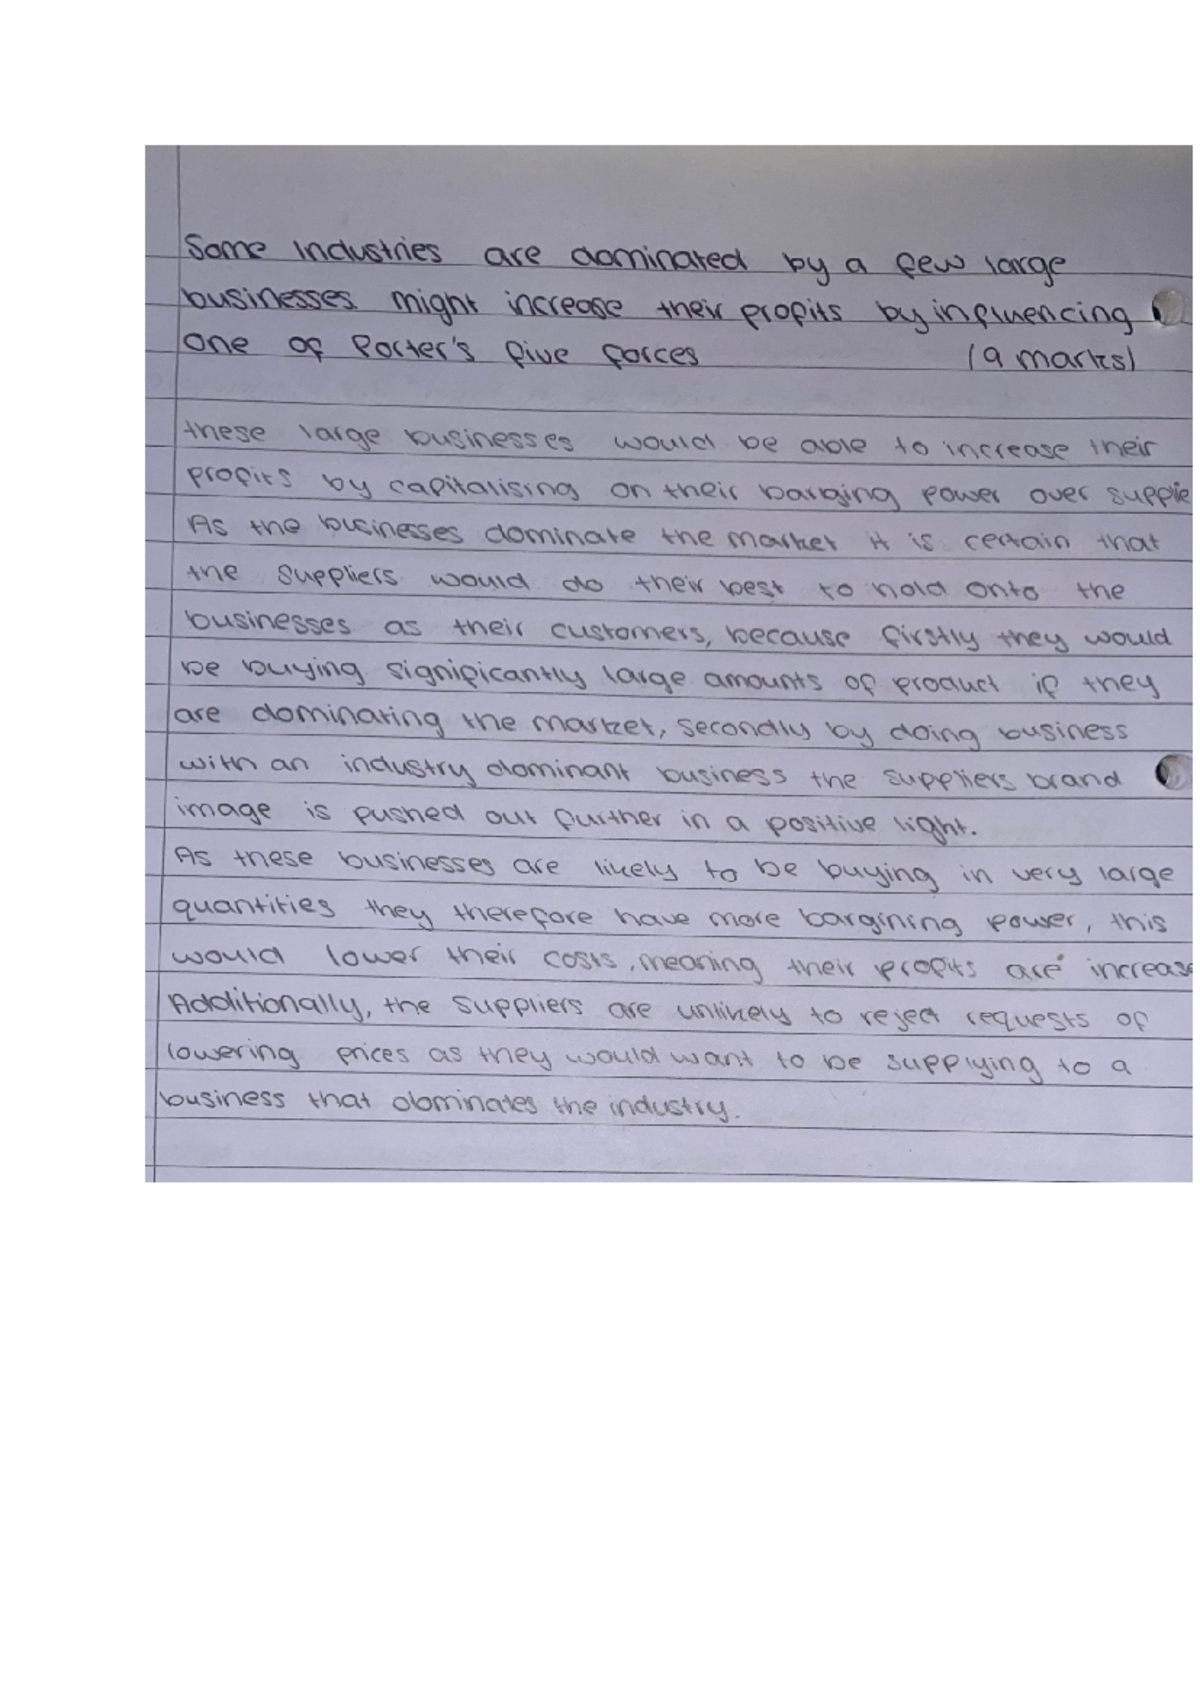 Some Industries are dominated by a few large
businesses might increase their profits by influencing
one of Porter's five forces (9 marks)
these large businesses would be able to increase their
profits by capitalising on their barging power over supplie
As the businesses dominate the market it is certain that
the suppliers would do their best to hold onto the
businesses as their customers, because firstly they would
be buying significantly large amounts of product if they
are dominating the market, secondly by doing business
with an industry dominant business the suppliers brand
image is pushed out further in a positive light.
As these businesses are likely to be buying in very large
quantities they therefore have more bargining power, this
would lower their costs, meaning their profits are increase
Additionally, the suppliers are unlikely to reject requests of
lowering prices as they would want to be supplying to a
business that dominates the industry.